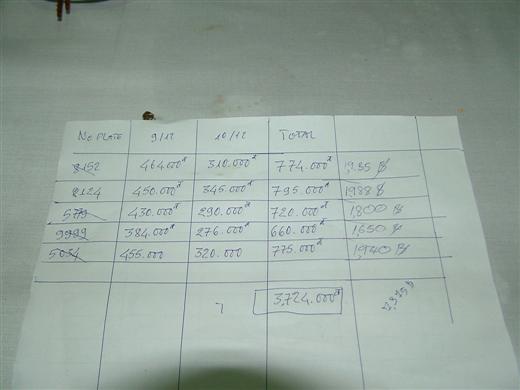 No PLATE 9/12 10/12 TOTAL
8152 464.000 310.000 774.000 1,935 ฿
8124 450.000 345.000 795.000 1988 ฿
430.000 290.000 720.000 1,800 ฿
9999 384.000 276.000 660.000 1,650 ฿
5054 455.000 320.000 775.000 1,940 ฿
3,724.000